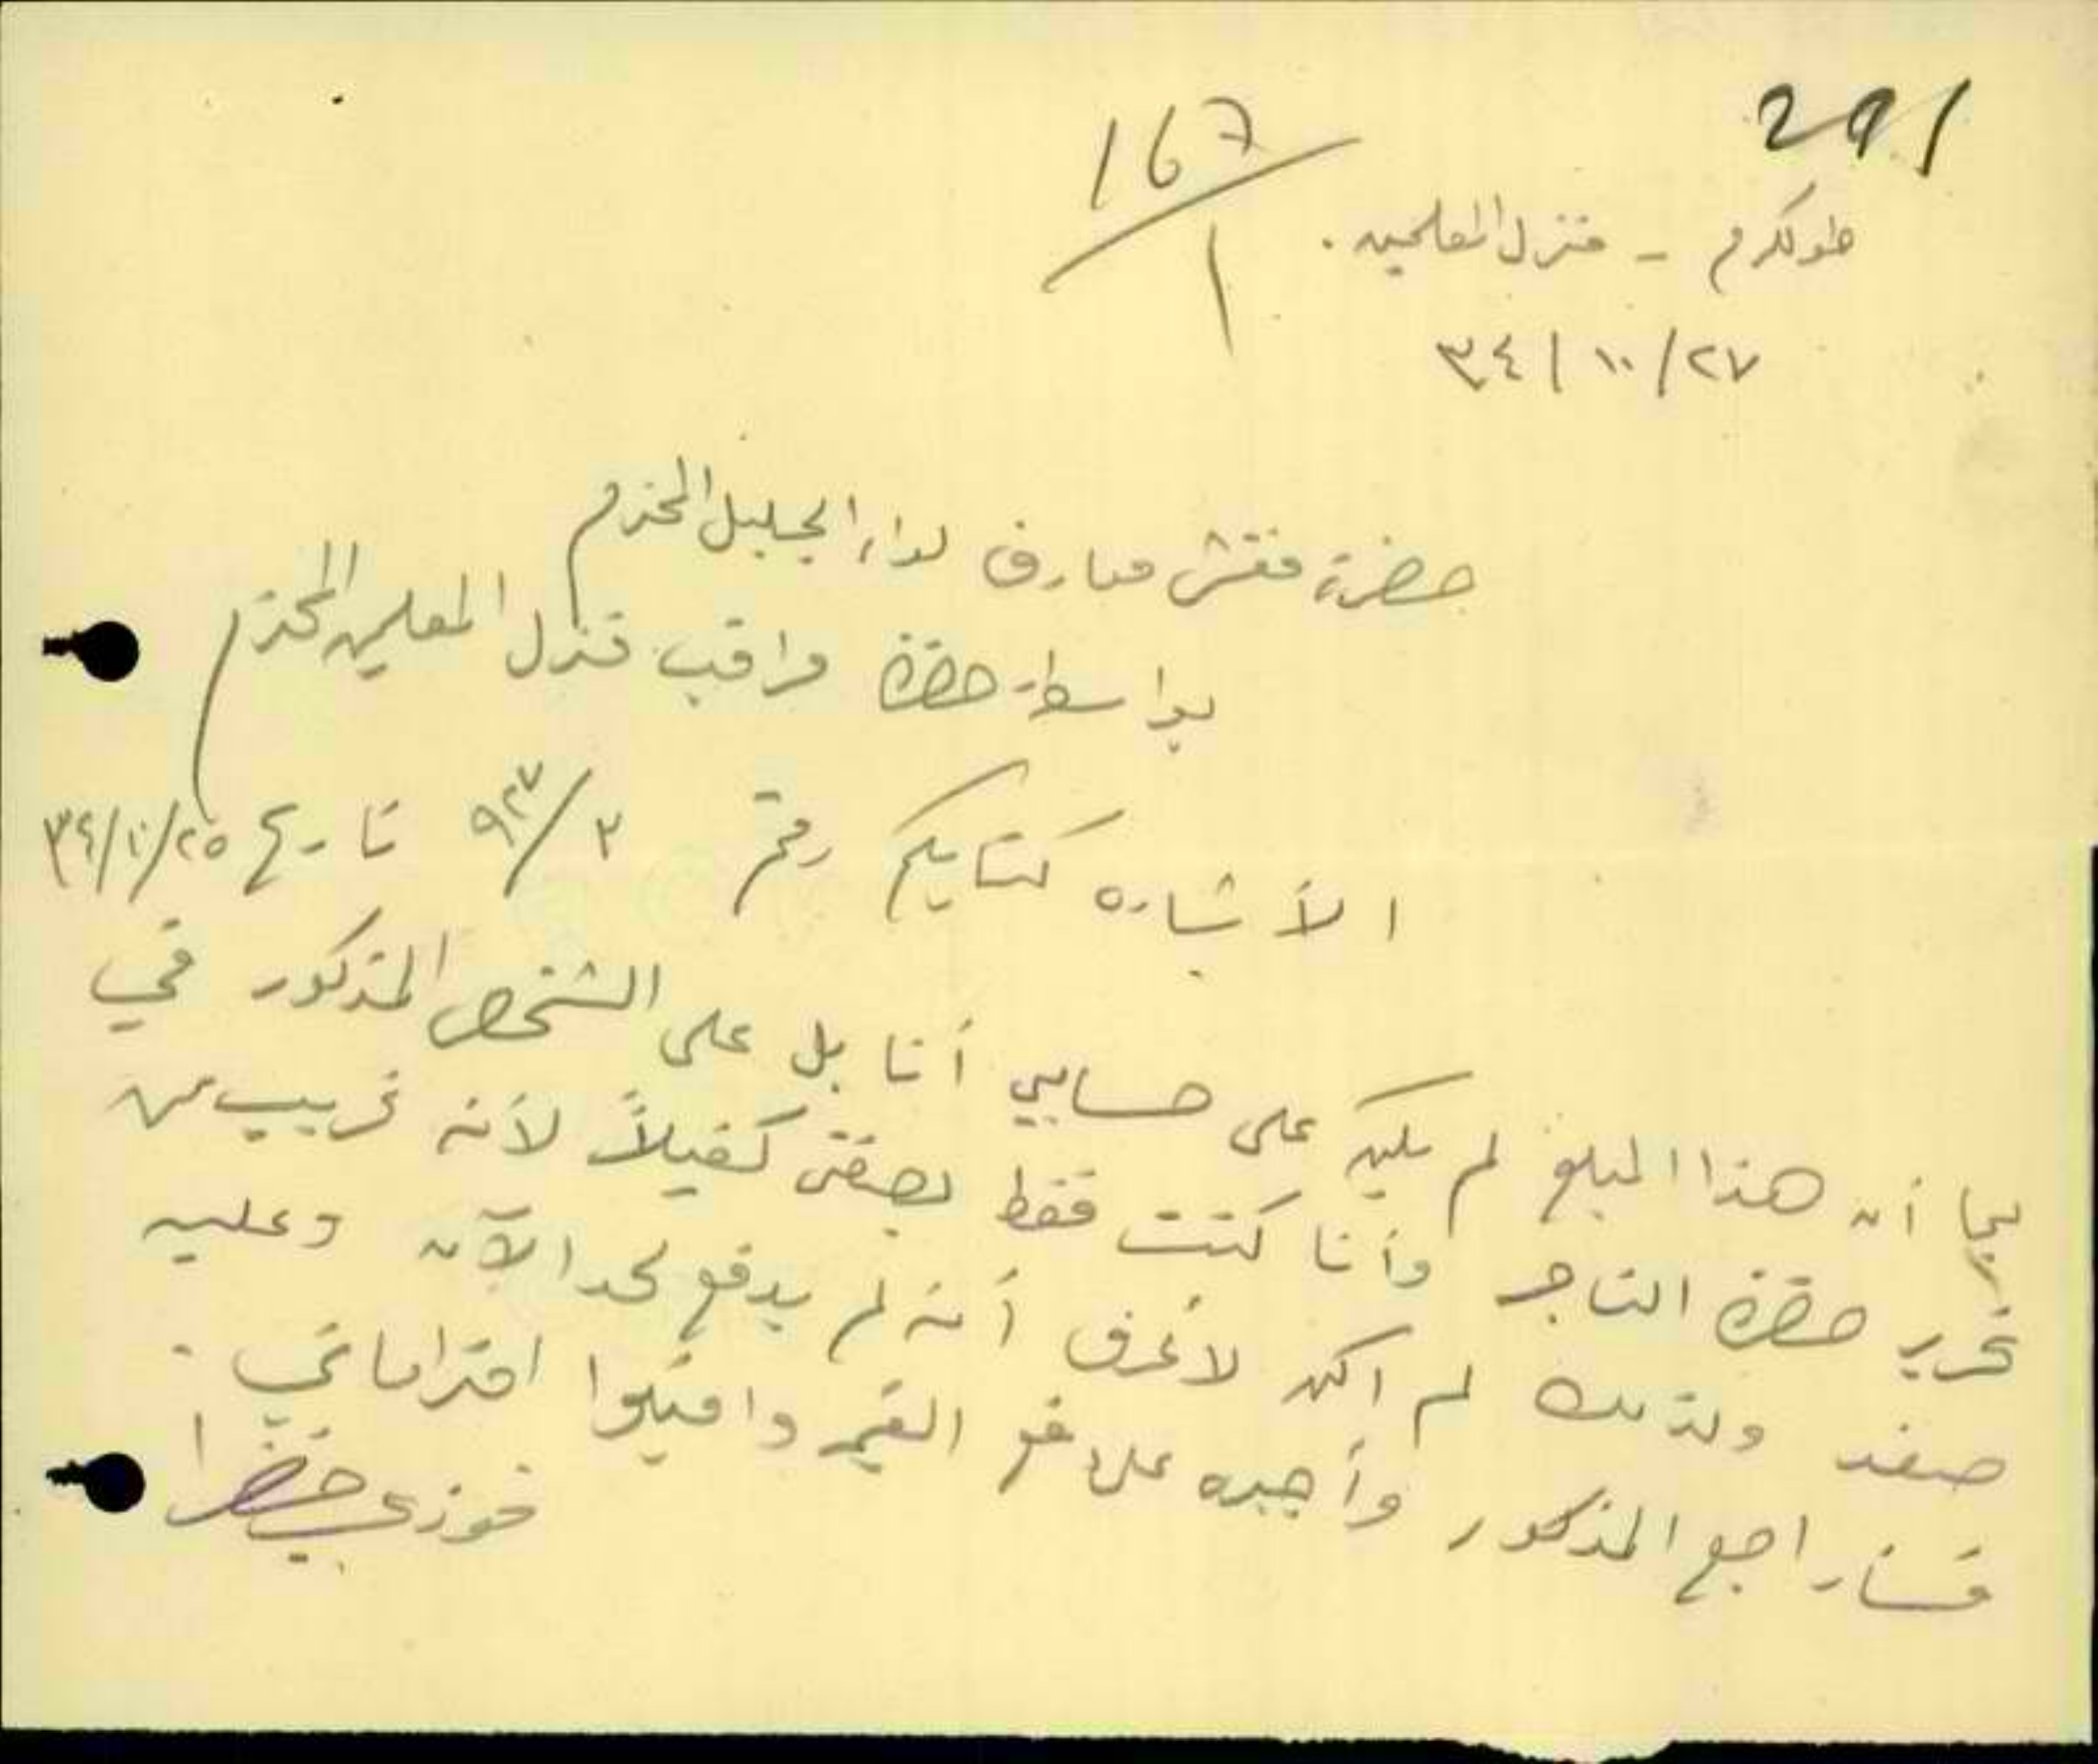 291
167/1
طولكرم - منزل المعلمين.
٢٧/١٠/٣٤
حضرة مفتش معارف لواء الجليل المحترم
بواسطة حضرة مراقب منزل المعلمين المحترم
الأشاره كتابكم رقم ٣/٩٢٧ تاريخ ٢٥/١٠/٣٤
بما أن هذا المبلغ لم يكن على حسابي أنا بل على الشخص المذكور في
تحرير حضرة التاجر وأنا كنت فقط بصفتي كفيلاً لأنه غريب عن
صفد ولذلك لم اكن لأعرف أنه لم يدفع لحد الآن وعليه
فسأراجع المذكور وأجبره على دفع القيمة واقبلوا احتراماتي.
فوزي خضرا